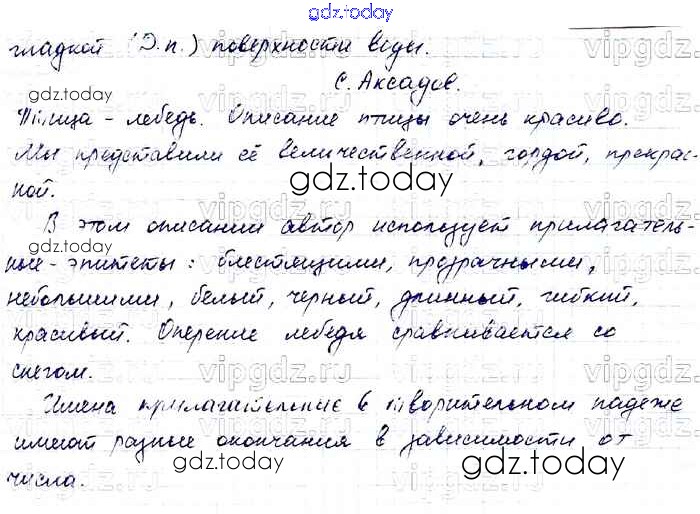 gdz.today
гладкой (Д.п.) поверхности воды.
С. Аксадов.
gdz.today
Птица - лебедь. Описание птицы очень красиво.
Мы представили её величественной, гордой, прекрас-
ной.
gdz.today
В этом описании автор использует прилагатель-
ные - эпитеты: блестящими, прозрачными,
gdz.today
небольшими, белый, черный, длинный, гибкий,
красивый. Оперение лебедя сравнивается со
снегом.
gdz.today
Имена прилагательные в творительном падеже
имеют разные окончания в зависимости от
числа.
gdz.today
gdz.today
vipgdz.ru